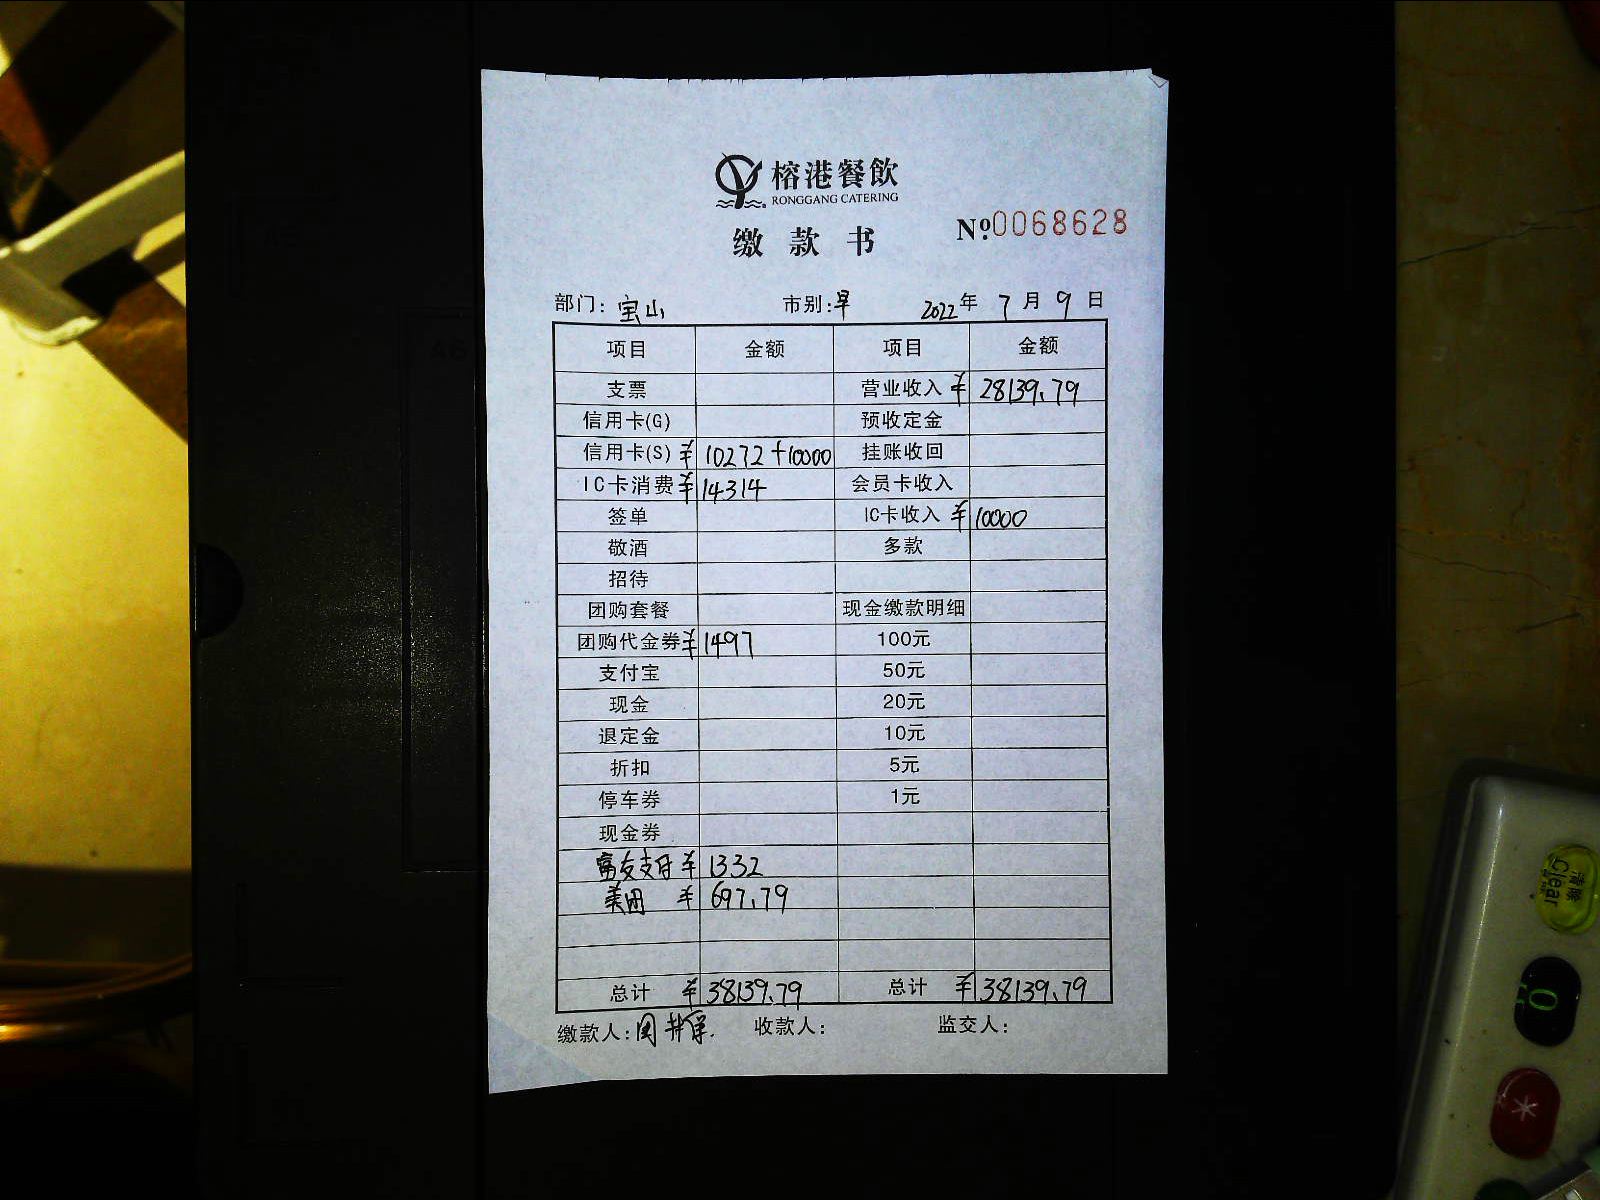 榕港餐飲
RONGGANG CATERING
缴款书
Nº:0068628
部门: 宝山 市别: 早 2022年 7月 9日
项目 金额 项目 金额
支票 营业收入 ¥ 28139.79
信用卡(G) 预收定金
信用卡(S) ¥ 10272+10000 挂账收回
IC卡消费 ¥ 14314 会员卡收入
签单 IC卡收入 ¥ 10000
敬酒 多款
招待
团购套餐 现金缴款明细
团购代金券 ¥ 1497 100元
支付宝 50元
现金 20元
退定金 10元
折扣 5元
停车券 1元
现金券
富友支付 ¥ 1332
美团 ¥ 697.79
总计 ¥ 38139.79 总计 ¥ 38139.79
缴款人: 收款人: 监交人:
清除
Clear
0
*
A6